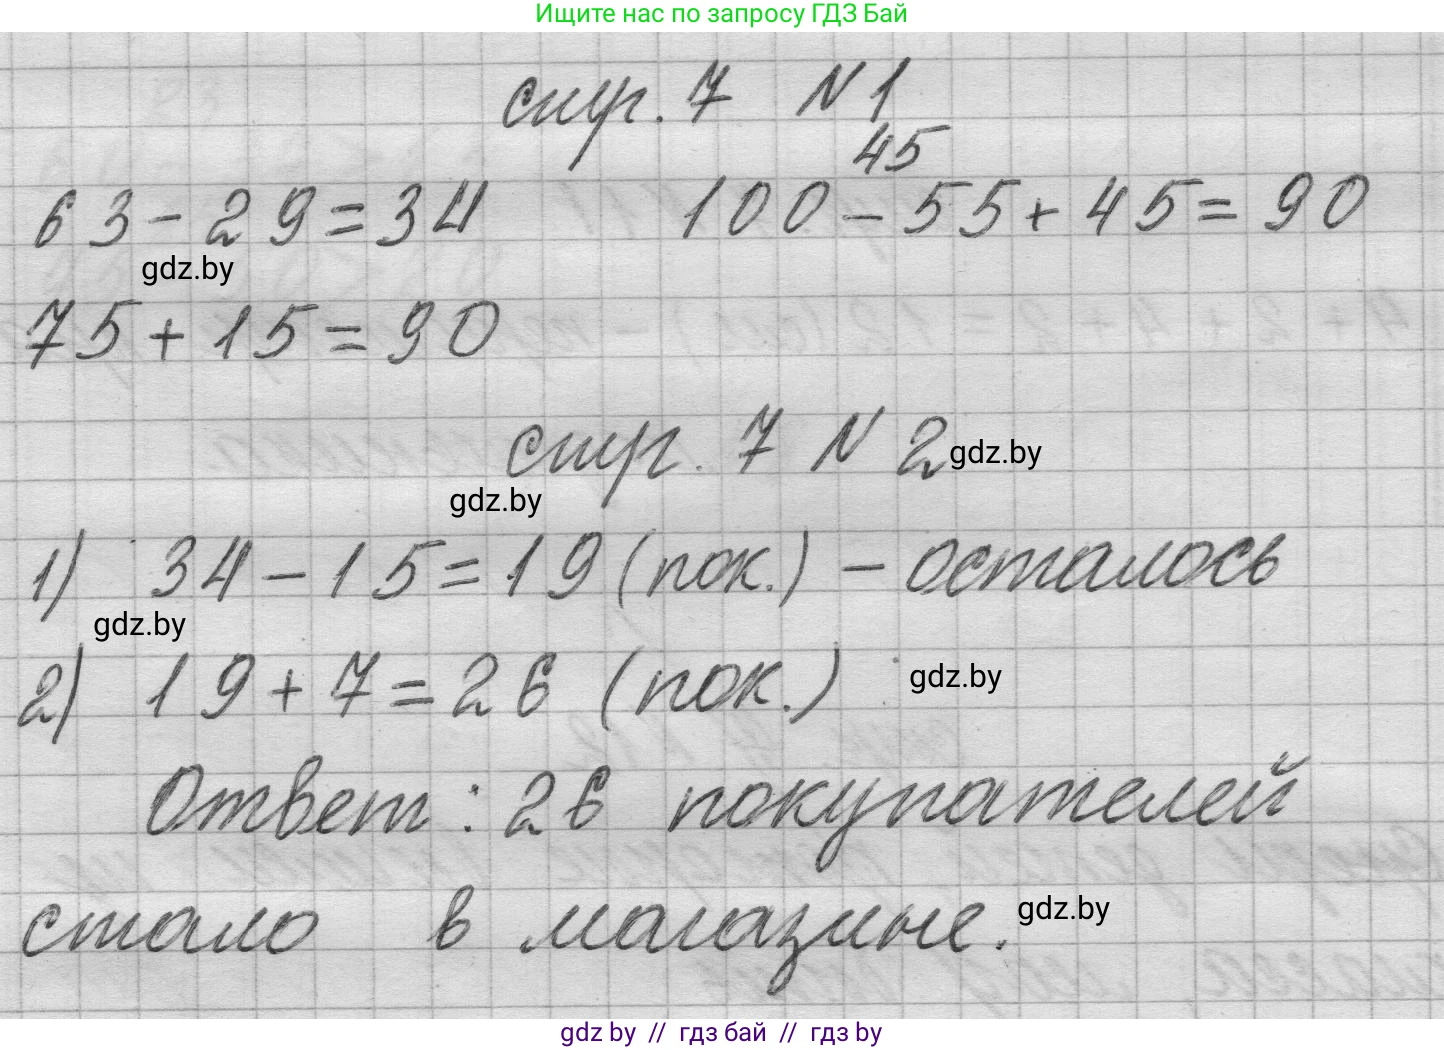 Ищите нас по запросу ГДЗ Бай
стр. 7 N 1
45
63-29=34 100-55+45=90
gdz.by
75+15=90
стр. 7 N 2 gdz.by
gdz.by
1) 34-15=19 (пок.) - осталось
gdz.by
2) 19+7=26 (пок.) gdz.by
Ответ: 26 покупателей
стало в магазине. gdz.by
gdz by // гдз бай // гдз by